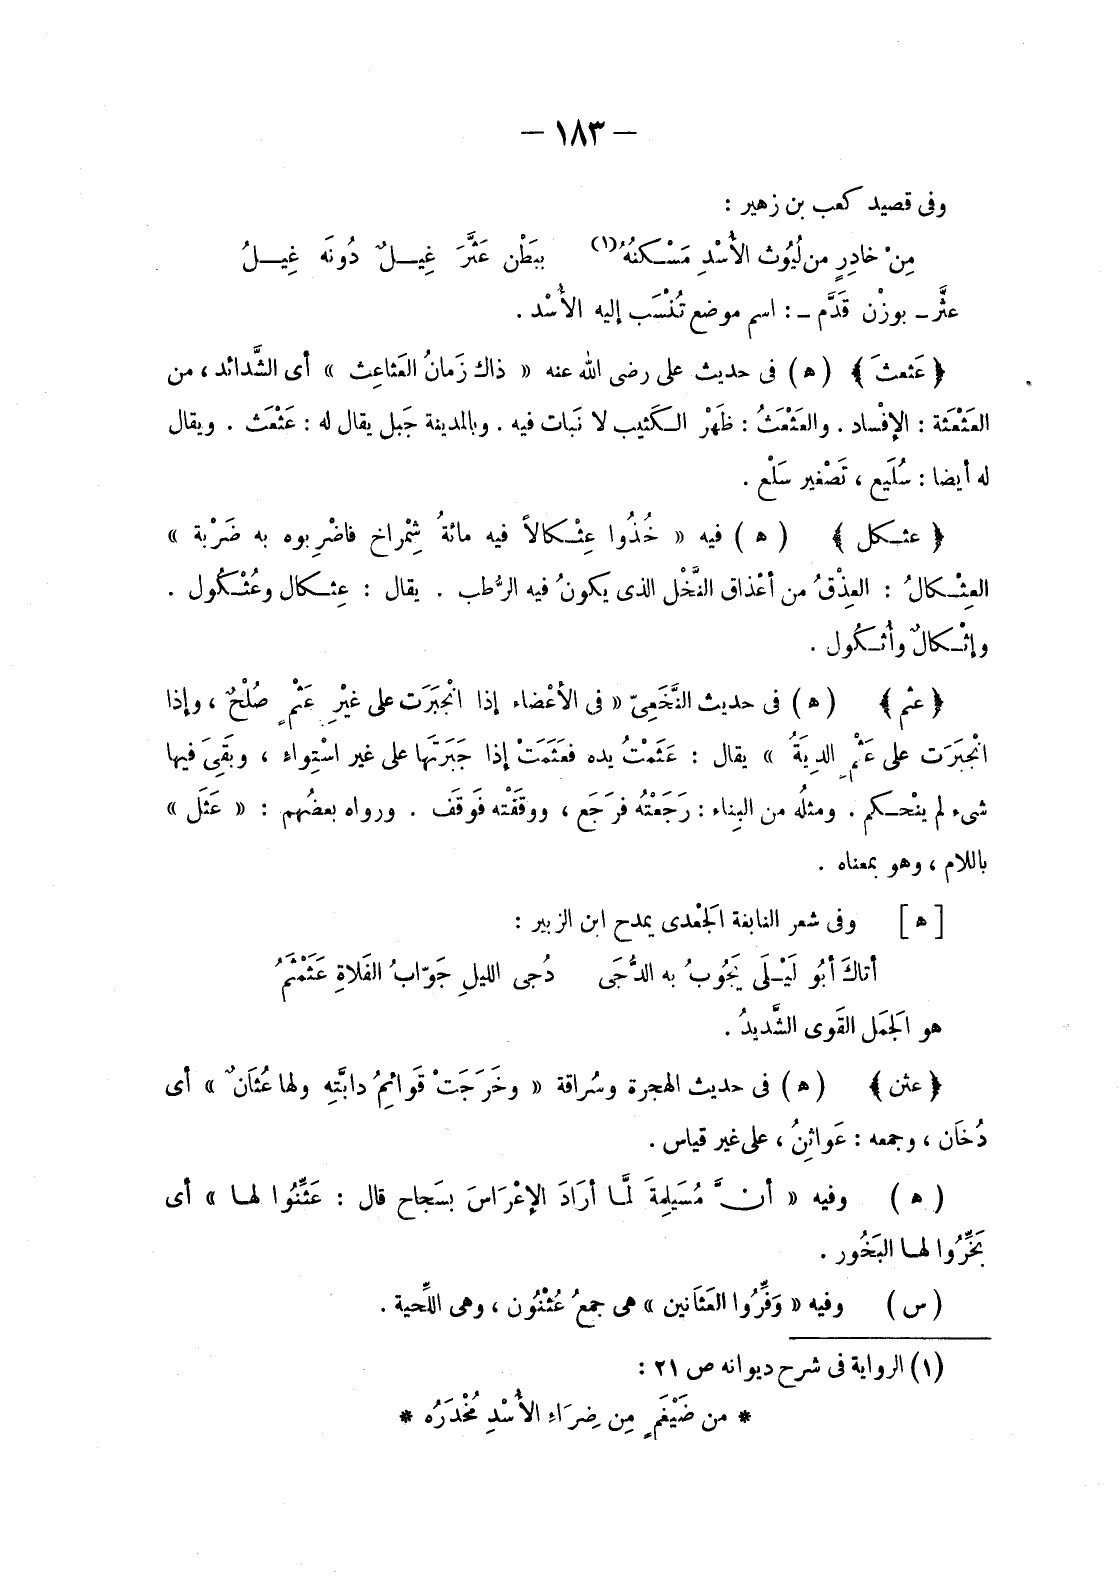 — ١٨٣ —
وفى قصيد كعب بن زهير :
مِنْ خادِرٍ من لُيُوث الأُسْدِ مَسْكنُهُ(١) ببَطْن عَثَّرَ غِيلٌ دُونَه غِيلُ
عثَّر ـ بوزْن قَدَّم ـ : اسم موضع تُنْسَب إليه الأُسْد .
﴿ عَثعثَ ﴾ ( ﻫ ) فى حديث على رضى الله عنه « ذاك زَمانُ العَثاعِث » أى الشَّدائد ، من
العَثْعَثَة : الإفْساد . والعَثْعَثُ : ظَهْرُ الكَثيب لا نَبات فيه . وبالمدينة جَبل يقال له : عَثْعَث . ويقال
له أيضا : سُلَيع ، تَصْغير سَلْع .
﴿ عثكل ﴾ ( ﻫ ) فيه « خُذُوا عِثْكالاً فيه مائةُ شِمْراخ فاضْرِبوه به ضَرْبة »
العِثْكالُ : العِذْقُ من أعْذاق النَّخْل الذى يكونُ فيه الرُّطب . يقال : عِثكال وعُثْكُول .
وإثْكالٌ وأُثكُول .
﴿ عثم ﴾ ( ﻫ ) فى حديث النَّخَعِىّ « فى الأعْضاء إذا انْجبَرَت على غيْرِ عَثْمٍ صُلْحٌ ، وإذا
انْجبَرَت على عَثْمٍ الدِيَةُ » يقال : عَثَمْتُ يده فعَثَمَتْ إذا جَبَرَتَها على غير اسْتِواء ، وبقِىَ فيها
شىء لم ينْحكم . ومثلُه من البِناء : رَجَعْتُه فرَجَع ، ووقَفْته فَوقَف . ورواه بعضُهم : « عَثَل »
باللام ، وهو بمعناه .
[ ﻫ ] وفى شعر النابغة الجَعْدى يمدح ابن الزبير :
أتاكَ أبُو لَيْلَى يَجُوبُ به الدُّجَى دُجى الليلِ جَوّابُ الفَلاةِ عَثَمْثَمُ
هو الجَمَل القَوى الشَّديدُ .
﴿ عثن ﴾ ( ﻫ ) فى حديث الهجرة وسُراقة « وخَرَجَتْ قَوائمُ دابَّتِه ولها عُثَانٌ » أى
دُخَان ، وجمعه : عَواثِنُ ، على غير قياس .
( ﻫ ) وفيه « أنَّ مُسَيلِمةَ لمَّا أرَادَ الإعْرَاسَ بسَجاح قال : عَثِّنُوا لها » أى
بَخِّرُوا لها البَخُور .
( س ) وفيه « وَفِّرُوا العَثَانين » هى جمعُ عُثْنُون ، وهى اللِّحية .
(١) الرواية فى شرح ديوانه ص ٢١ :
* من ضَيْغَمٍ مِن ضِرَاءِ الأُسْدِ مُخْدَرُه *